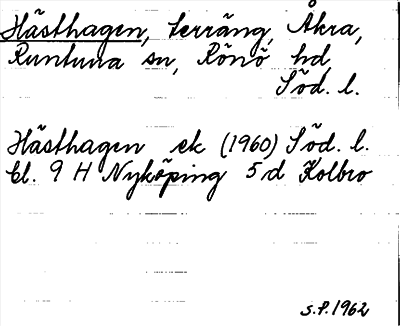 Hästhagen, terräng, Åkra,
Runtuna sn, Rönö hd,
Söd. l.
Hästhagen ek (1960) Söd. l.
bl. 9 H Nyköping 5 d Kolbro
S.P. 1962